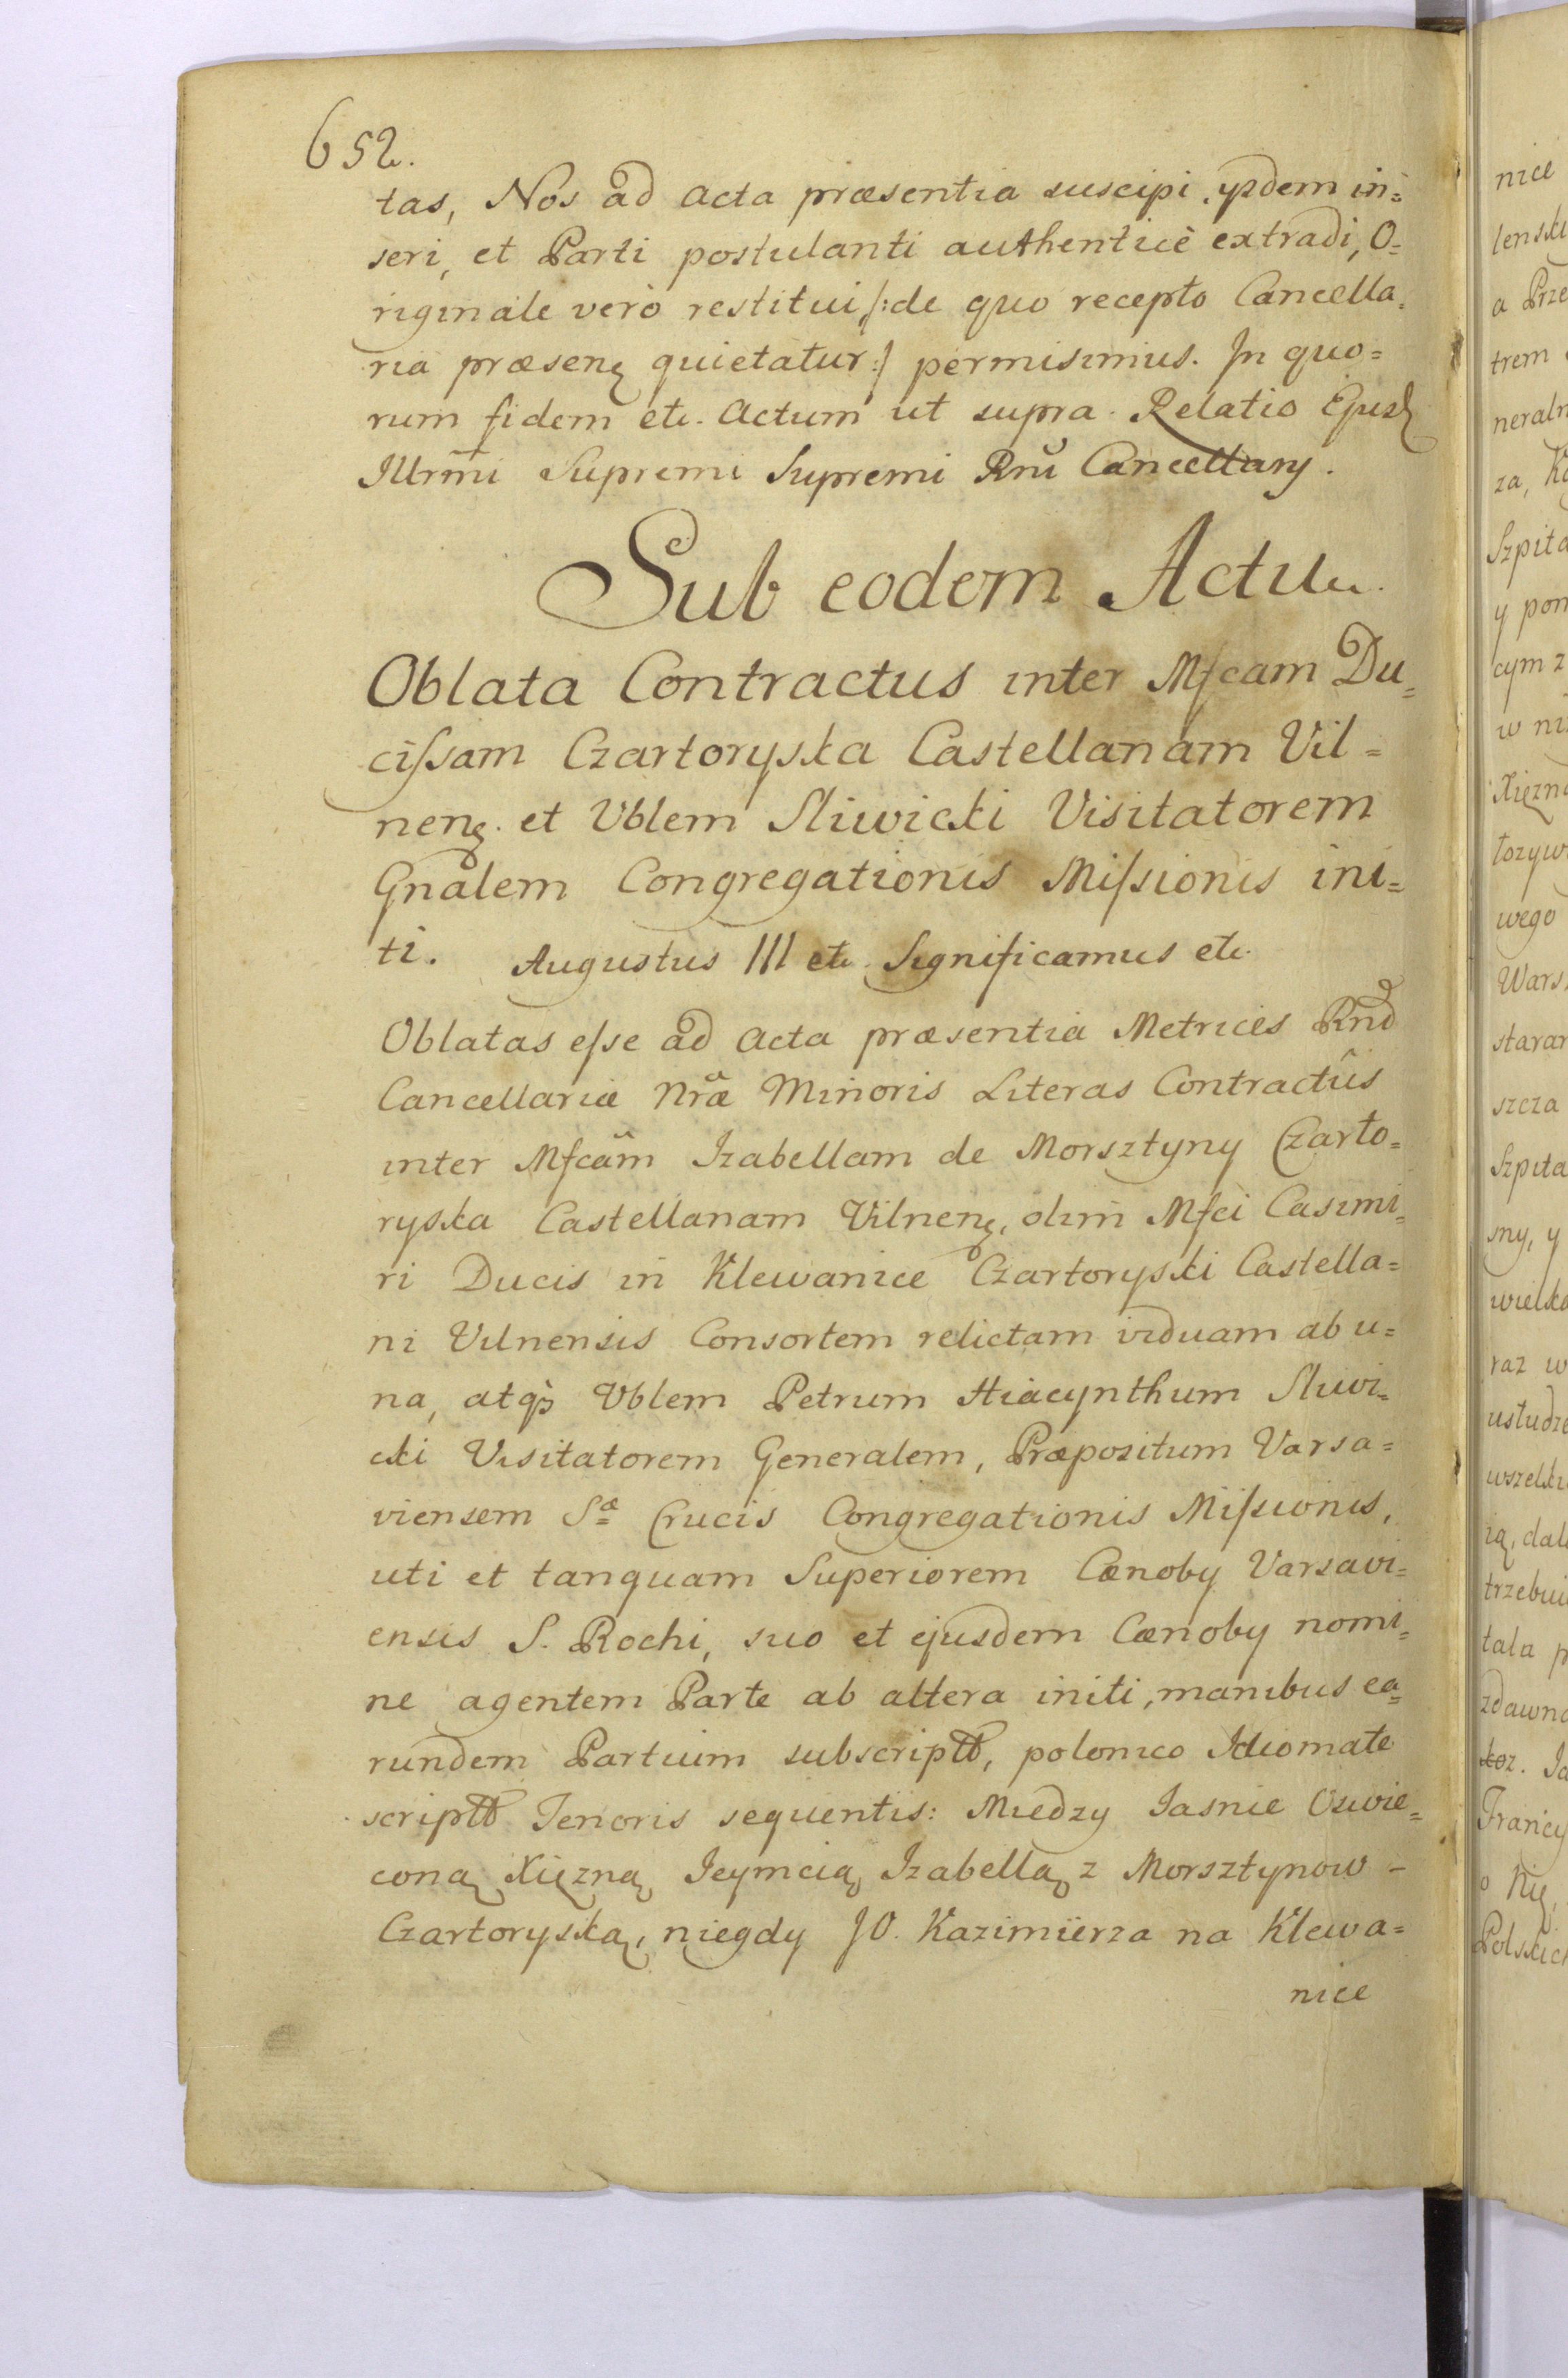 652.
tas, Nos ad acta præsentia suscipi, ysdem in=
seri, et Parti postulanti authenticè extradi, O=
riginale verò restitui /:de quo recepto Cancella=
ria præsenȩ quietatur:/ permisimus. In quo=
rum fidem etc. Actum ut supra. Relatio Ejusd
Illrmi Supremi Supremi Rni Cancellary.
Sub eodem Actu.
Oblata Contractus inter Mfcam Du=
cissam Czartoryska Castellanam Vil=
nenȩ. et Vblem Sliwicki Visitatorem
Gnalem Congregationis Missionis ini=
ti. Augustus III etc. Significamus etc.
Oblatas esse ad acta præsentia Metrices Rnd
Cancellariæ Nræ Minoris Literas Contractûs
inter Mfcam Izabellam de Morsztyny Czarto=
ryska Castellanam Vilnenȩ, olim Mfci Casimi=
ri Ducis in Klewanice Czartoryski Castella=
ni Vilnensis Consortem relictam viduam ab u=
na, atqɜ Vblem Petrum Hiacynthum Sliwi=
cki Visitatorem Generalem, Præpositum Varsa=
viensem Sæ Crucis Congregationis Missionis,
uti et tanquam Superiorem Cænoby Varsavi=
ensis S. Rochi, suo et ejusdem Cænoby nomi=
ne agentem Parte ab altera initi, manibus ea=
rundem Partium subscriptt, polonico Idiomate
scriptt Tenoris sequentis: Miedzy Iasnie Oswie=
coną Xięzną Ieymcią Izabellą z Morsztynow -
Czartoryską, niegdy JO. Kazimierza na Klewa=
nice
nice
lensk
a Prze
trem
neraln
za, K
Szpita
y pom
cym z
w ni
Xięzna
łozyw
wego
Wars
staran
szcza
Szpita
sny, y
wielk
raz w
usłudze
wszelk
ią, dal
trzebu
tala p
zdawna
Francy
o Kię
Polskich